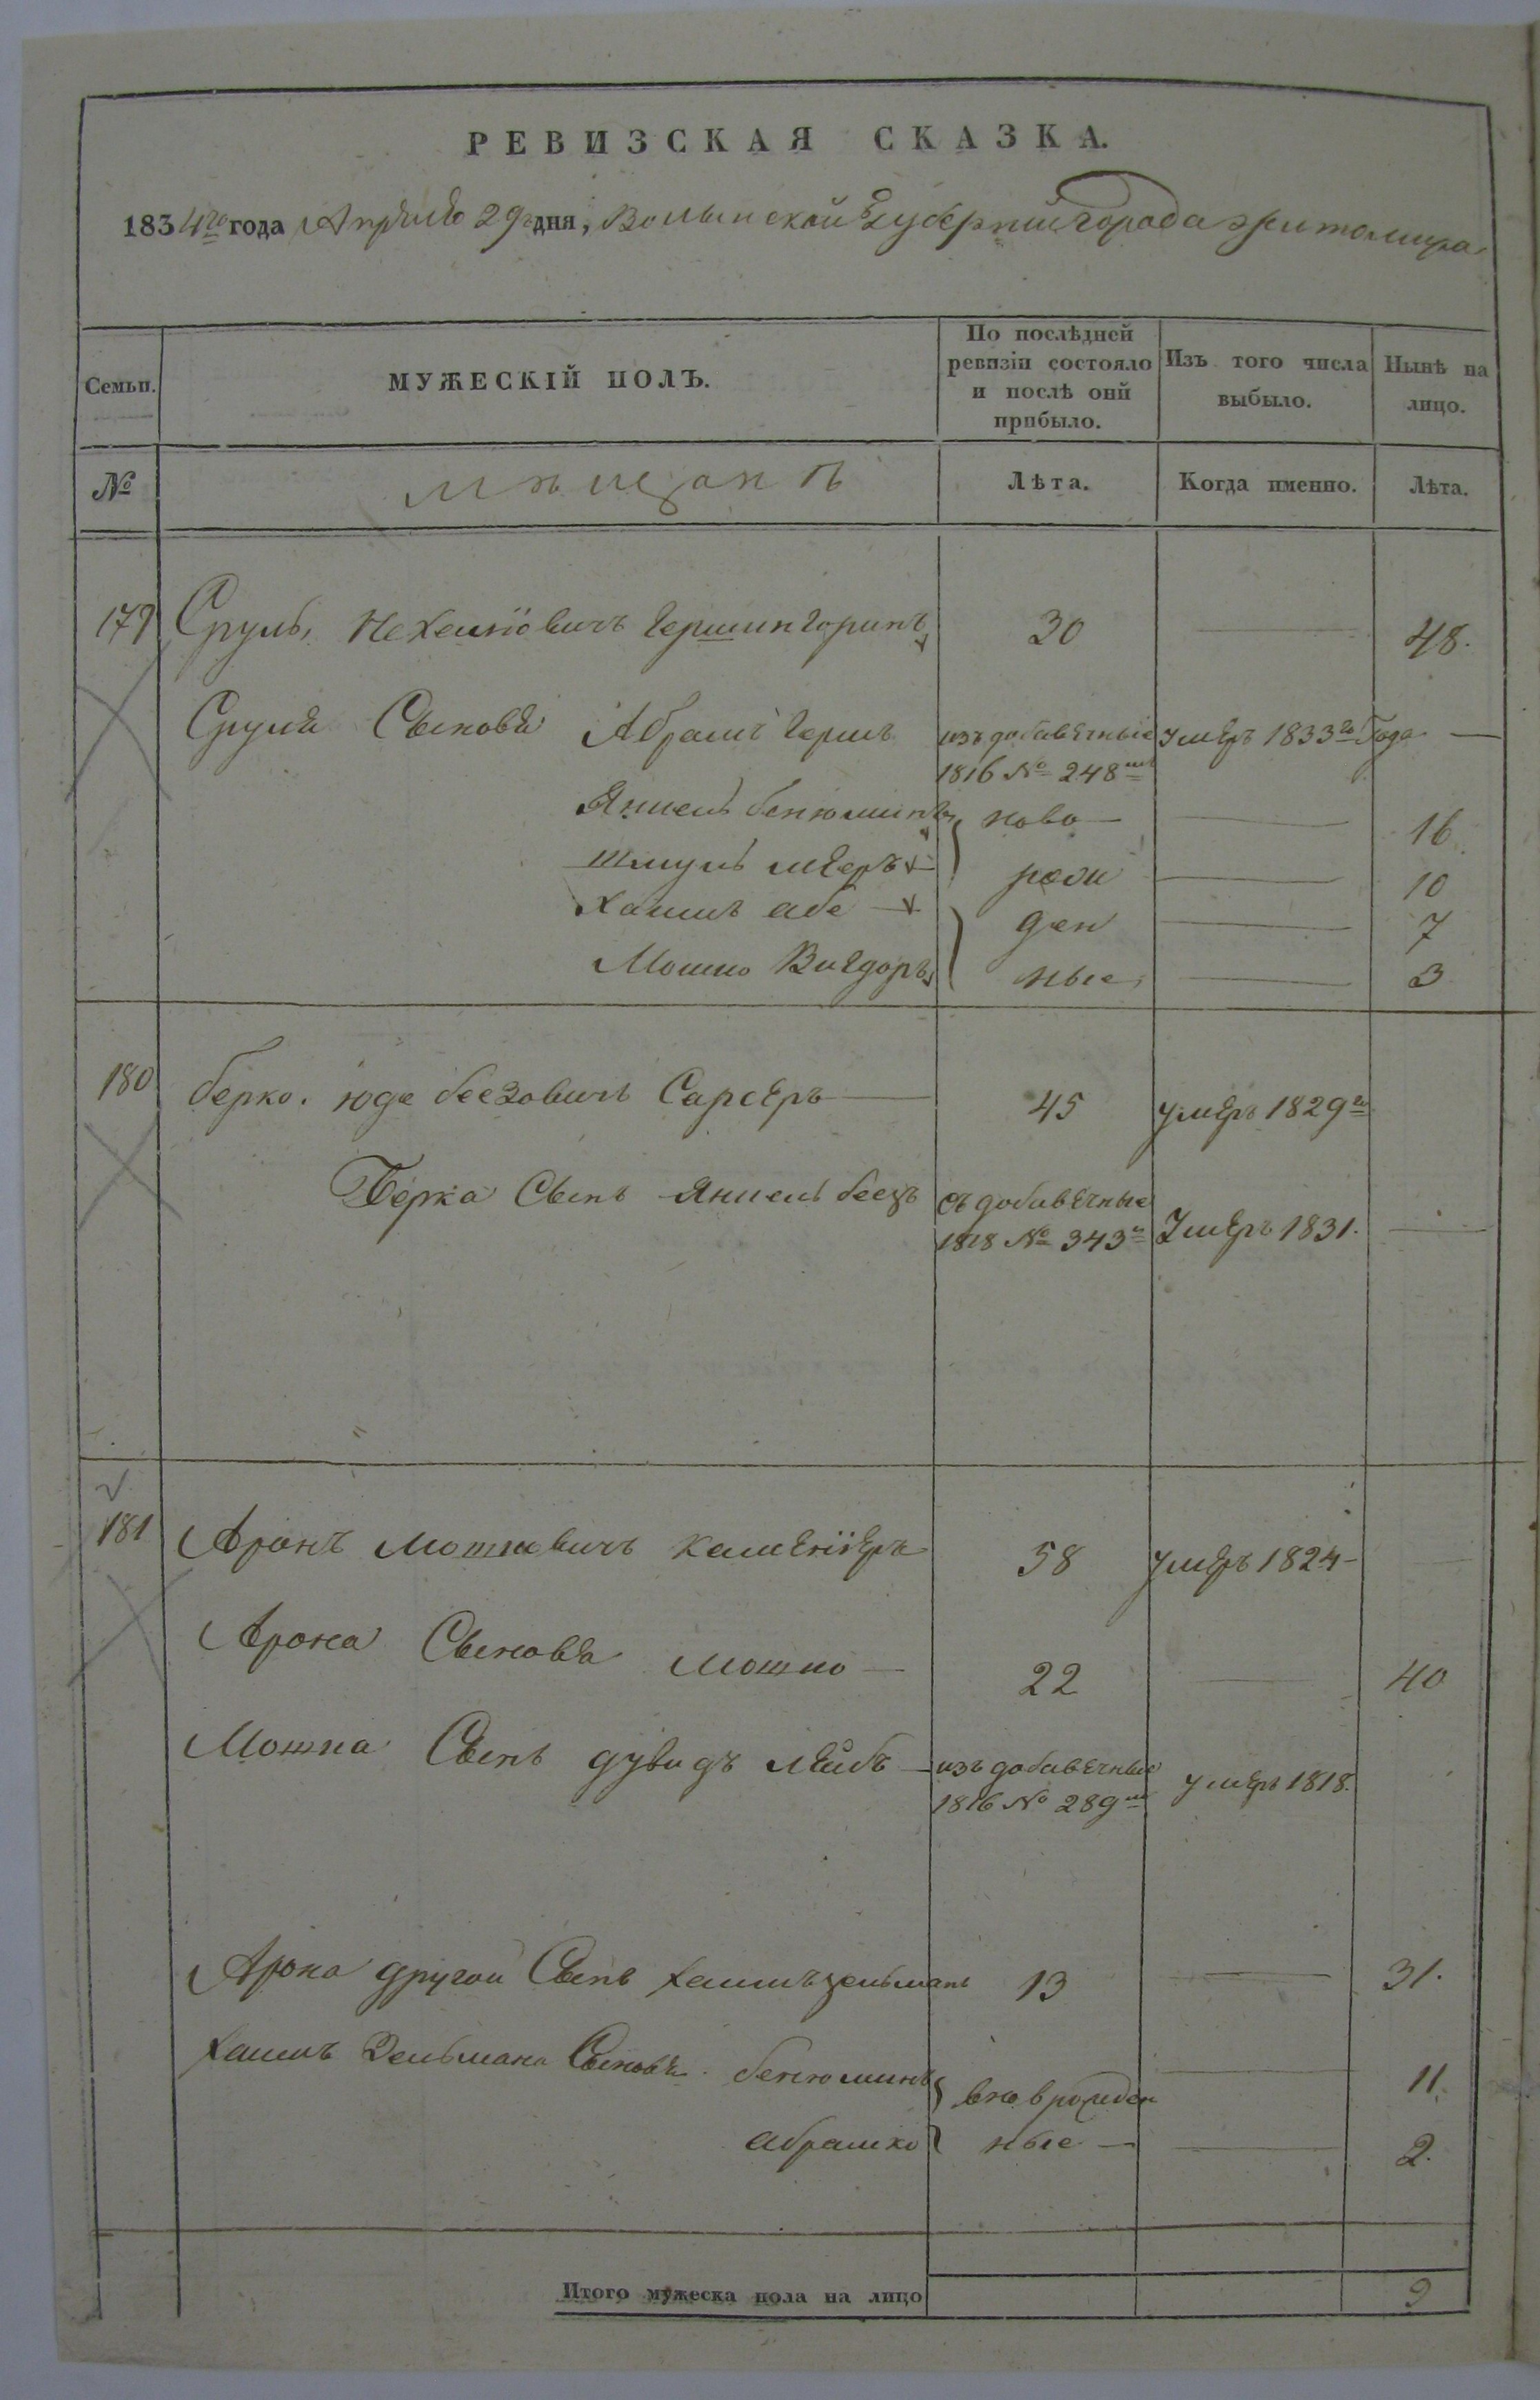 РЕВИЗСКАЯ СКАЗКА.
1834го года Апреля 29 дня, Волынской Губернии города Житомира
Семьи. МУЖЕСКІЙ ПОЛЪ. По послѣдней ревизіи состояло и послѣ оній прибыло. Изъ того числа выбыло. Нынѣ на лицо.
№ мѣщанъ Лѣта. Когда именно. Лѣта.
179 Сруль Нехемiовичъ 30 48.
Сруля Сыновя Абрамъ Герш изъ добавечные 1816 № 248 умеръ 1833го Года
Янкель бенюминъ ново 16
Шмуль мееръ рози 10
Хаимъ абе ден 7
Мошко Вигдоръ ные 3
180 берко юде беезовичъ Сарсеръ 45 умеръ 1829го
Берка Сынъ Янкель беезъ съ добавечные 1818 № 343 Умеръ 1831.
181 Аронъ Мошковичъ каменiеръ 58 умеръ 1824
Арона Сыновя Мошко 22 40
Мошка Сынъ дувидъ лейбъ изъ добавечные 1816 № 289 умеръ 1818.
Арона другой Сынъ хаимъ зельманъ 13 31.
хаимъ Зельмана Сыновя бенюминъ вноврожден 11.
абрамко ные 2.
Итого мужеска пола на лицо 9